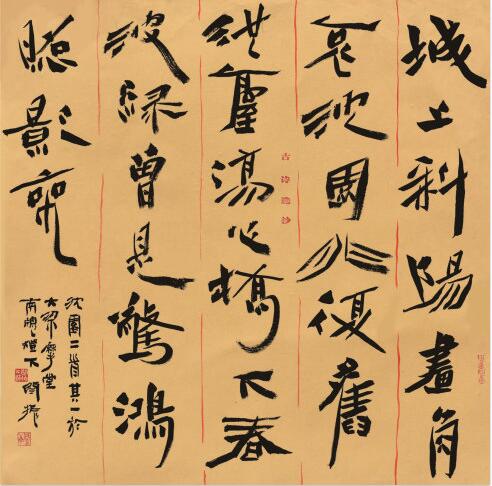 城上斜陽畫角
哀沈園非復舊
池臺傷心橋下春
波綠曾是驚鴻
照影來
沈園二首其一於
大梁堂
南牕燈下